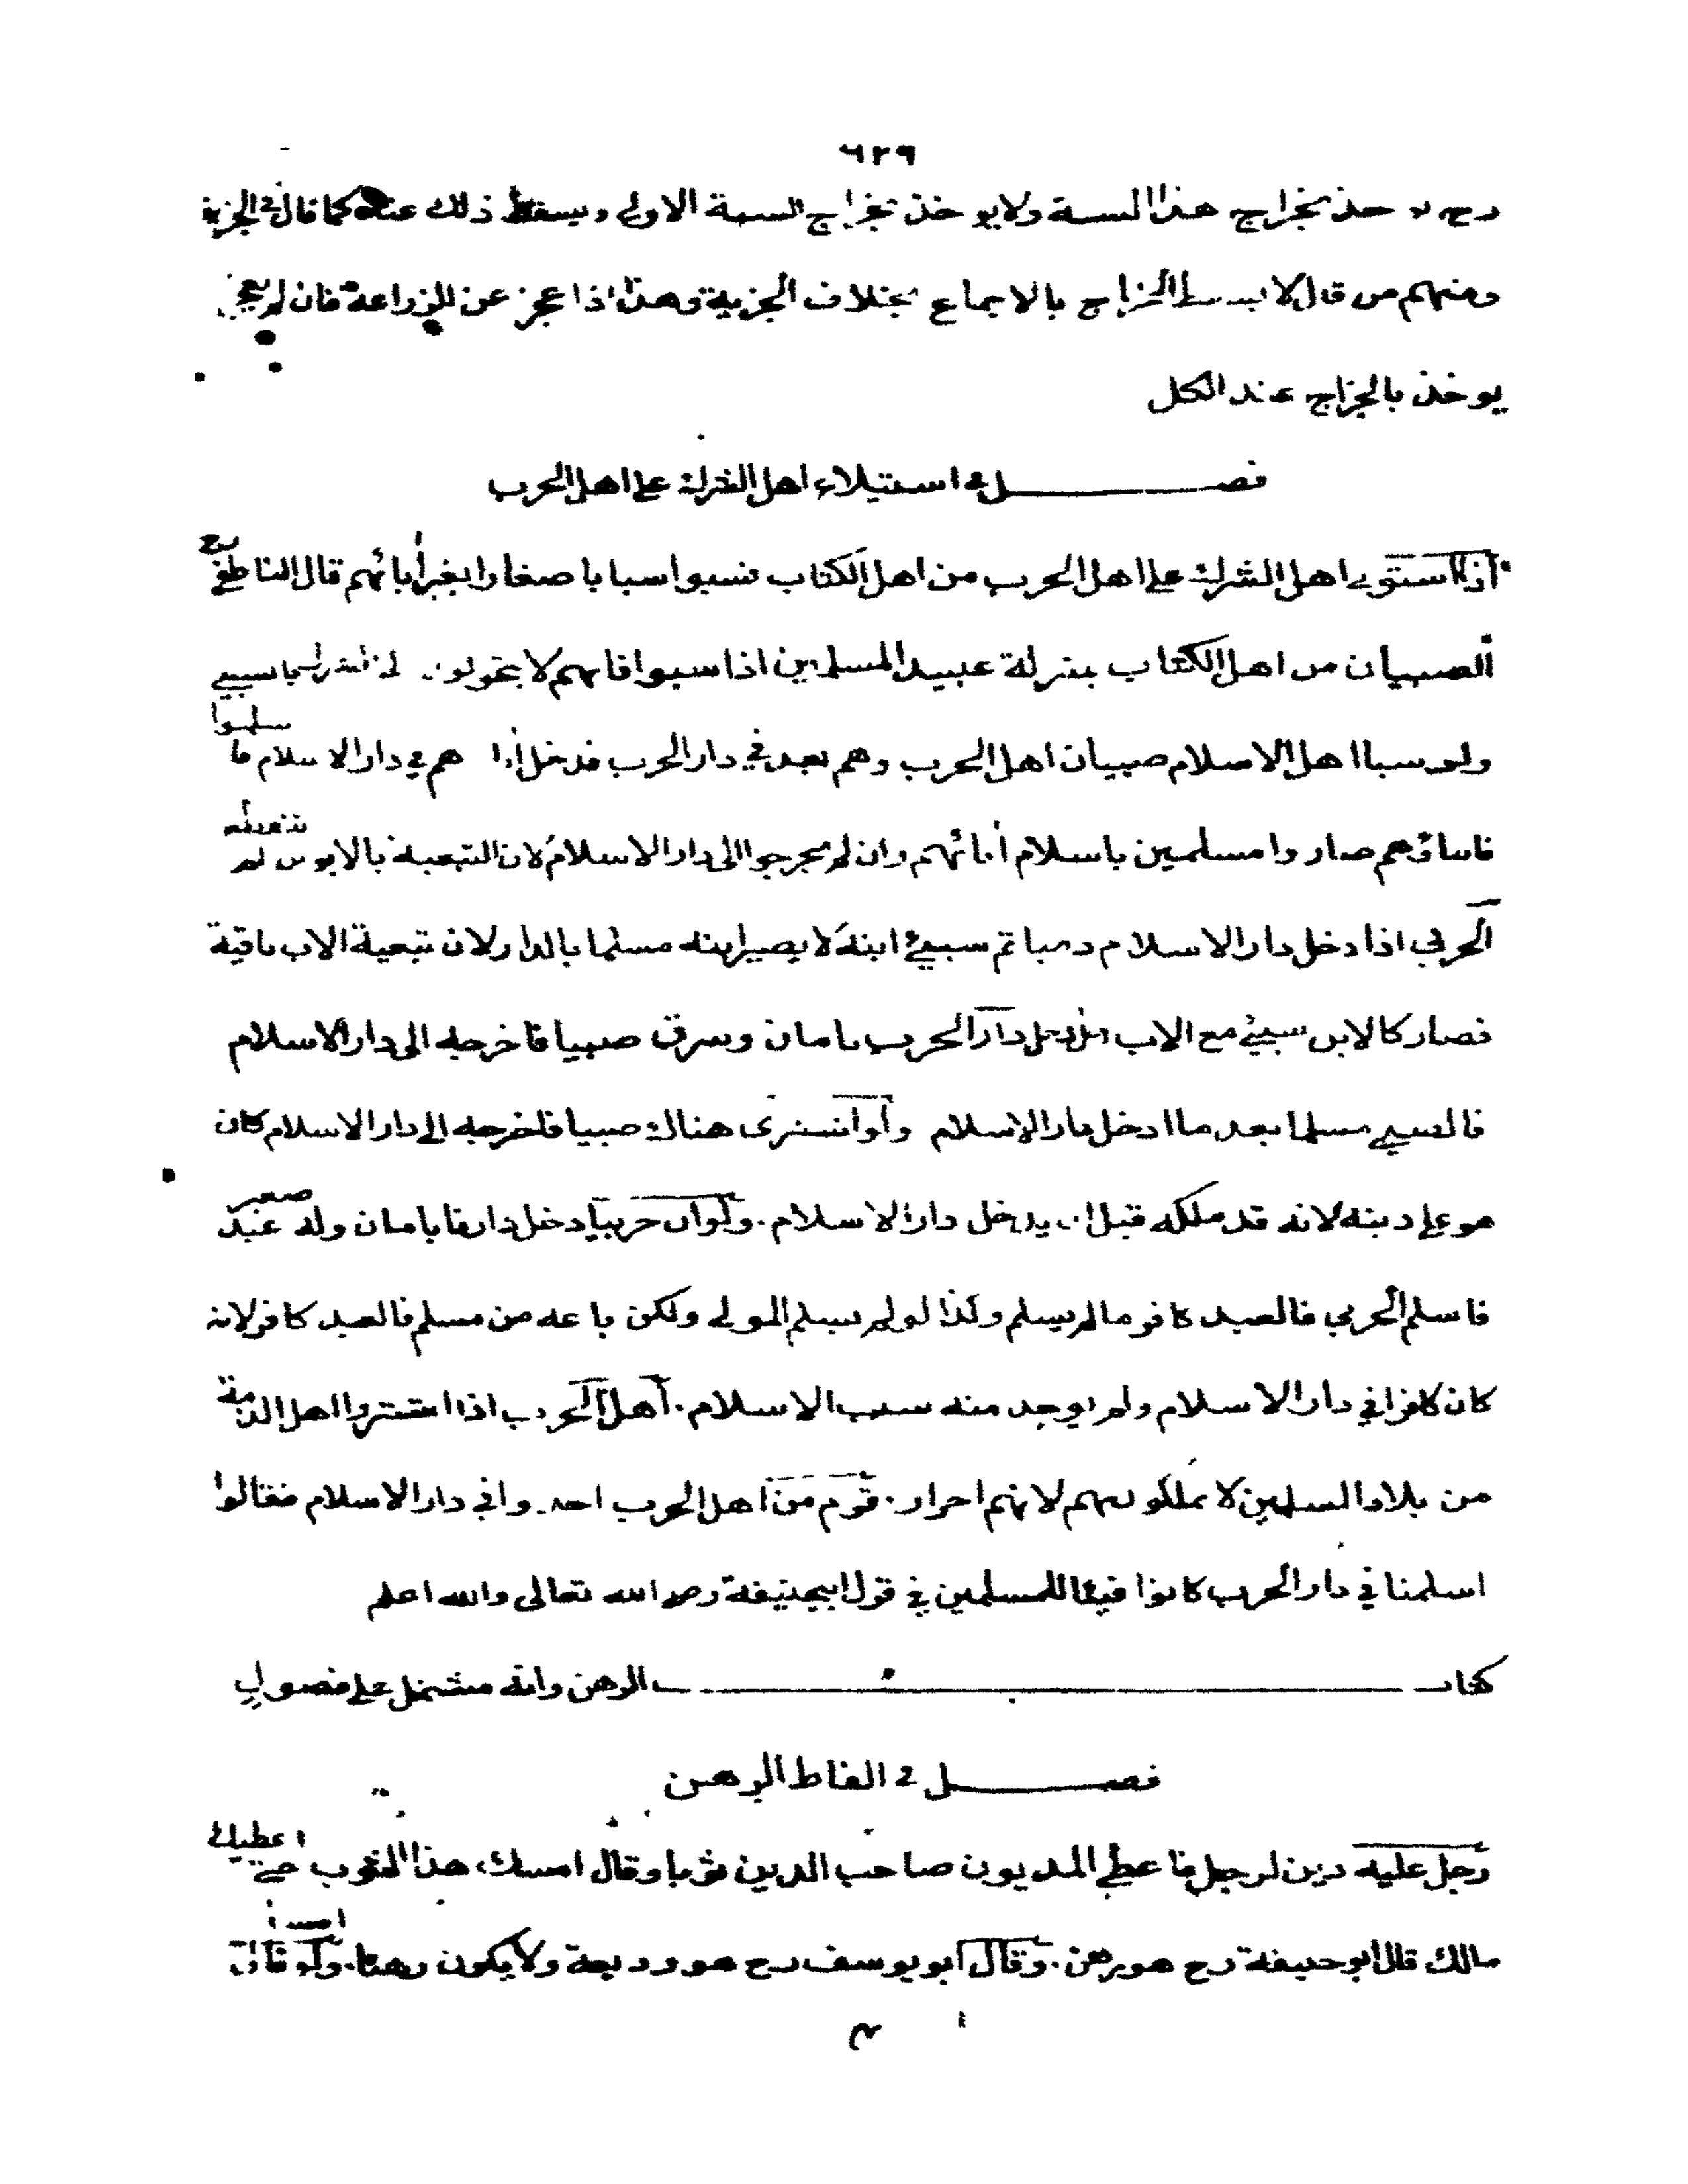 ٦٢٩
رح يوخذ بخراج هذا السنة ولايوخذ بخراج السنة الاولى ويسقط ذلك عنه كما قال في الجزية
ومنهم من قال لا يسقط الخراج بالاجماع بخلاف الجزية وهذا اذا عجز عن الزراعة فان لم يعجز
يوخذ بالخراج عند الكل
فصل في استيلاء اهل الشرك على اهل الحرب
اذا استولى اهل الشرك على اهل الحرب من اهل الكتاب فسبوا سبايا صغارا بغير أبائهم قال الناطفي رح
الصبيان من اهل الكتاب بمنزلة عبيد المسلمين اذا سبوا فانهم لا يتحولون
ولو سبا اهل الاسلام صبيان اهل الحرب وهم بعد في دار الحرب فدخل أباؤهم في دار الاسلام فاسلموا
فابناؤهم صاروا مسلمين باسلام أبائهم وان لم يخرجوا الى دار الاسلام لان التبعية بالابوين لم تنقطع
الحربي اذا دخل دار الاسلام ذميا ثم سبي ابنه لا يصير ابنه مسلما بالدار لان تبعية الاب باقية
فصار كالابن سبي مع الاب دخل دار الحرب بامان وسرق صبيا فاخرجه الى دار الاسلام
فالصبي مسلما بعد ما ادخل دار الاسلام ولو اشترى هناك صبيا فاخرجه الى دار الاسلام كان
هو على دينه لانه قد ملكه قبل ان يدخل دار الاسلام. ولو ان حربيا دخل دارنا بامان وله عبد صغير
فاسلم الحربي فالعبد كافر مالم يسلم وكذا لو لم يسلم المولى ولكن باعه من مسلم فالعبد كافر لانه
كان كافرا في دار الاسلام ولم يوجد منه سبب الاسلام. أهل الحرب اذا اشتروا اهل الذمة
من بلاد المسلمين لا يملكونهم لانهم احرار. قوم من اهل الحرب اخذوا في دار الاسلام فقالوا
اسلمنا في دار الحرب كانوا فيئا للمسلمين في قول ابيحنيفة رحمه الله تعالى والله اعلم
كتاب الرهن وانه مشتمل على فصول
فصل في الفاظ الرهن
رجل عليه دين لرجل فاعطى المديون صاحب الدين ثوبا وقال امسك هذا الثوب حتى اعطيك
مالك قال ابو حنيفة رح هو رهن. وقال ابو يوسف رح هو وديعة ولا يكون رهنا. ولو قال امسك